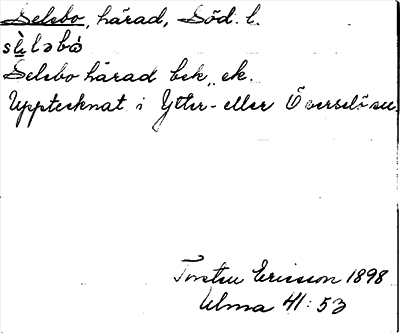 Selebo, härad, Söd. l.
sè̱lǝbò
Selebo härad bek. ek.
Upptecknat i Ytter- eller Överselö sn.
Torsten Ericsson 1898
Ulma 41:53